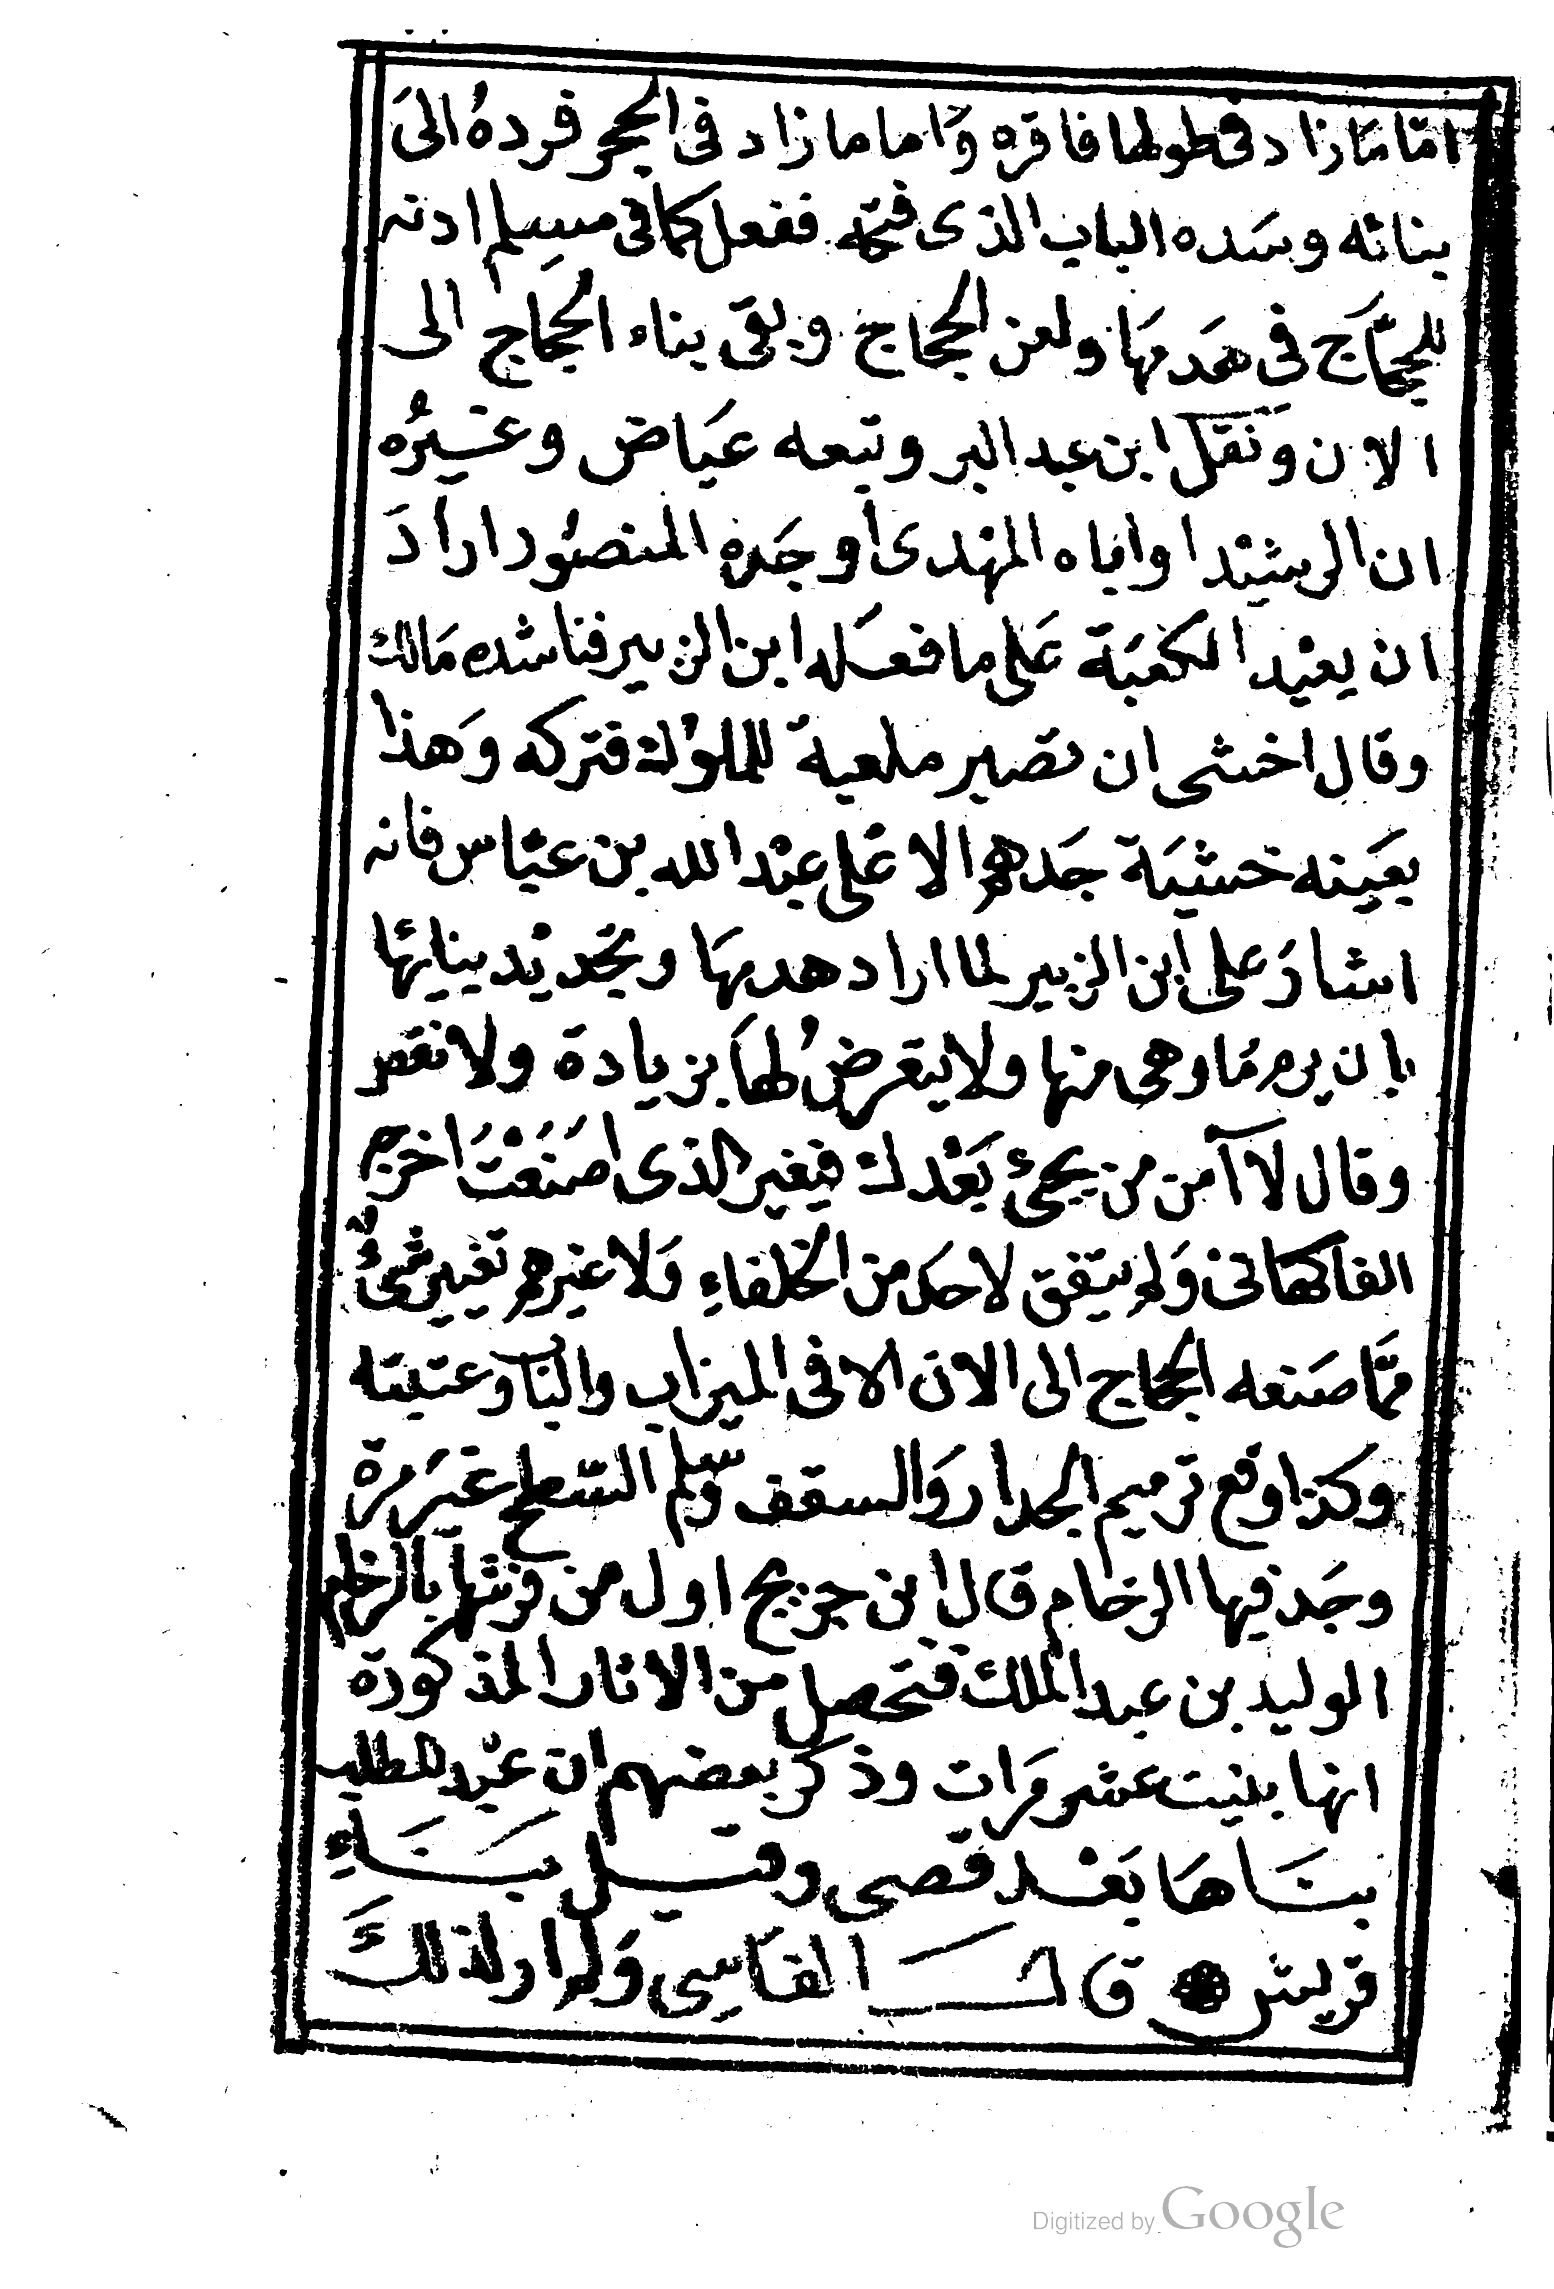 امّا مَا زاد في طولها فاقره وَاما ما زاد في الحجر فردهُ الىَ
بنائه وسَده الباب الذى فتحه ففعل كما فى مسلم اذنه
للحجّاَج في هَدمهَا ولعن الحجاج وبقى بناء الحجاج الى
الان وَنقل ابن عبد البر وتبعه عيَاض وغيرُه
ان الرشيْد او اباه المهْدى أو جَده المنصُور ارادَ
ان يعيْد الكعبَة عَلى ما فعَله ابن الزبير فناشده مَالك
وقال اخشى ان تصير ملعبة للملوُك فتركه وَهذا
بعَينه خشيَة جَدهم الا عْلى عبْد الله بن عبّاس فانه
اشارَ على ابن الزبير لما اراد هدمهَا وتجديْد بنائهَا
بان يرم مَا وهى منها ولا يتعرضُ لهَا بزيادة ولا نقص
وقال لا آمن من يجئ بَعْدك فيغير الذى صَنَعْتَ اخرج
الفاكهانى وَلم يتفق لاحد من الخلفاءِ وَلا غيرهم تغيير شئٌ
ممَّا صَنعه الحجاج الى الان الا فى الميزاب والبَاب وعتبته
وكذا وقع ترميم الجدار وَالسقف وَسلم السّطح غيَر مرة
وجَد فيها الرخام قال ابن جريج اول من فرشها بالرخام
الوليد بن عبد الملك فتحصل من الاثار المذكورة
انها بنيت عشر مَرات وذكر بعضهم ان عبْد المطلب
بنَاهَا بَعْد قصى وقيل بنَاءِ
قريش ۞ قال الفَاسِى وَلم ار لذلكَ
Digitized by Google